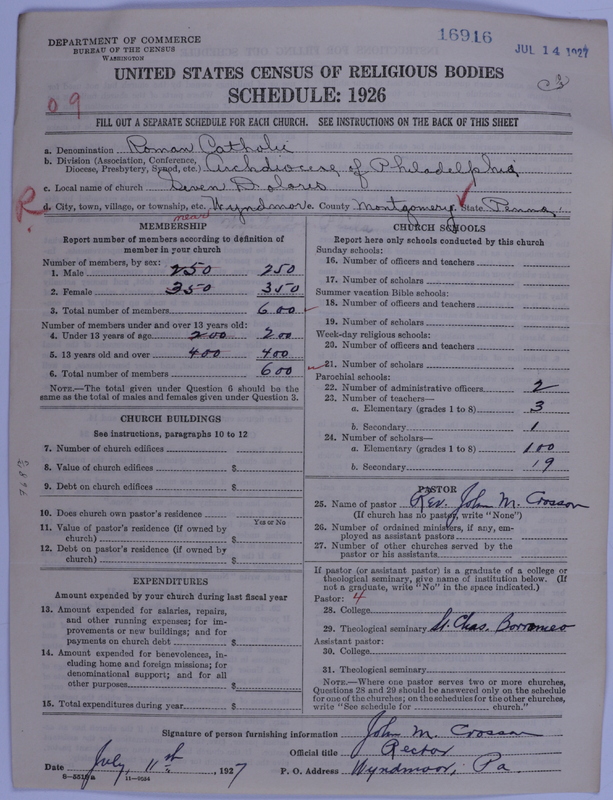 DEPARTMENT OF COMMERCE
BUREAU OF THE CENSUS
WASHINGTON
16916
JUL 14 1927
UNITED STATES CENSUS OF RELIGIOUS BODIES
SCHEDULE: 1926
09
FILL OUT A SEPARATE SCHEDULE FOR EACH CHURCH. SEE INSTRUCTIONS ON THE BACK OF THIS SHEET
a. Denomination Roman Catholic
b. Division (Association, Conference, Diocese, Presbytery, Synod, etc.) Archdiocese of Philadelphia
c. Local name of church Seven Dolors
R. d. City, town, village, or township, etc. near Wyndmoor e. County Montgomery State Penna.
MEMBERSHIP
Report number of members according to definition of
member in your church
Number of members, by sex:
1. Male 250 250
2. Female 350 350
3. Total number of members 600
Number of members under and over 13 years old:
4. Under 13 years of age 200 200
5. 13 years old and over 400 400
6. Total number of members 600
NOTE.—The total given under Question 6 should be
the same as the total of males and females given under Question 3.
CHURCH BUILDINGS
See instructions, paragraphs 10 to 12
7. Number of church edifices
8. Value of church edifices $
9. Debt on church edifices $
10. Does church own pastor's residence
Yes or No
11. Value of pastor's residence (if owned by
church) $
12. Debt on pastor's residence (if owned by
church) $
EXPENDITURES
Amount expended by your church during last fiscal year
13. Amount expended for salaries, repairs,
and other running expenses; for im-
provements or new buildings; and for
payments on church debt $
14. Amount expended for benevolences, in-
cluding home and foreign missions; for
denominational support; and for all
other purposes $
15. Total expenditures during year $
CHURCH SCHOOLS
Report here only schools conducted by this church
Sunday schools:
16. Number of officers and teachers
17. Number of scholars
Summer vacation Bible schools:
18. Number of officers and teachers
19. Number of scholars
Week-day religious schools:
20. Number of officers and teachers
21. Number of scholars
Parochial schools:
22. Number of administrative officers 2
23. Number of teachers—
a. Elementary (grades 1 to 8) 3
b. Secondary 1
24. Number of scholars—
a. Elementary (grades 1 to 8) 100
b. Secondary 19
PASTOR
25. Name of pastor Rev. John M. Crosson
(If church has no pastor, write "None")
26. Number of ordained ministers, if any, em-
ployed as assistant pastors
27. Number of other churches served by the
pastor or his assistants
If pastor (or assistant pastor) is a graduate of a college or
theological seminary, give name of institution below. (If
not a graduate, write "No" in the space indicated.)
Pastor: 4
28. College
29. Theological seminary St. Chas. Borromeo
Assistant pastor:
30. College
31. Theological seminary
NOTE.—Where one pastor serves two or more churches,
Questions 28 and 29 should be answered only on the schedule
for one of the churches; on the schedules for the other churches,
write "See schedule for church."
Signature of person furnishing information John M. Crosson
Official title Rector
Date July, 11st, 1927 P. O. Address Wyndmoor, Pa.
8-551 11-9034